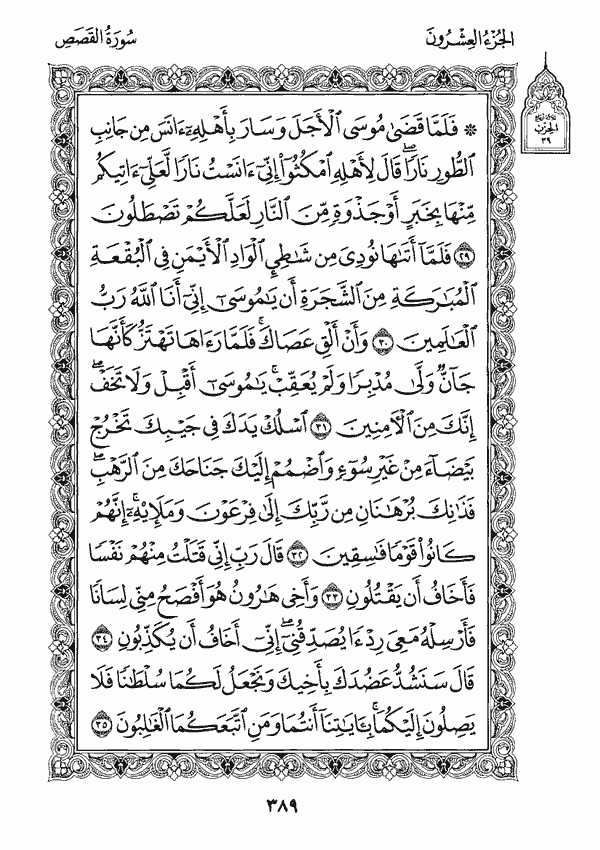 الجزء العشرون
سورة القصص
الحزب
٣٩
۞ فَلَمَّا قَضَىٰ مُوسَى ٱلْأَجَلَ وَسَارَ بِأَهْلِهِۦٓ ءَانَسَ مِن جَانِبِ
ٱلطُّورِ نَارًاۖ قَالَ لِأَهْلِهِ ٱمْكُثُوٓا۟ إِنِّىٓ ءَانَسْتُ نَارًا لَّعَلِّىٓ ءَاتِيكُم
مِّنْهَا بِخَبَرٍ أَوْ جَذْوَةٍ مِّنَ ٱلنَّارِ لَعَلَّكُمْ تَصْطَلُونَ
٢٩ فَلَمَّآ أَتَىٰهَا نُودِىَ مِن شَـٰطِئِ ٱلْوَادِ ٱلْأَيْمَنِ فِى ٱلْبُقْعَةِ
ٱلْمُبَـٰرَكَةِ مِنَ ٱلشَّجَرَةِ أَن يَـٰمُوسَىٰٓ إِنِّىٓ أَنَا ٱللَّهُ رَبُّ
ٱلْعَـٰلَمِينَ ٣٠ وَأَنْ أَلْقِ عَصَاكَۖ فَلَمَّا رَءَاهَا تَهْتَزُّ كَأَنَّهَا
جَآنٌّ وَلَّىٰ مُدْبِرًا وَلَمْ يُعَقِّبْۚ يَـٰمُوسَىٰٓ أَقْبِلْ وَلَا تَخَفْۖ
إِنَّكَ مِنَ ٱلْـَٔامِنِينَ ٣١ ٱسْلُكْ يَدَكَ فِى جَيْبِكَ تَخْرُجْ
بَيْضَآءَ مِنْ غَيْرِ سُوٓءٍ وَٱضْمُمْ إِلَيْكَ جَنَاحَكَ مِنَ ٱلرَّهْبِۖ
فَذَٰنِكَ بُرْهَـٰنَانِ مِن رَّبِّكَ إِلَىٰ فِرْعَوْنَ وَمَلَإِي۟هِۦٓۚ إِنَّهُمْ
كَانُوا۟ قَوْمًا فَـٰسِقِينَ ٣٢ قَالَ رَبِّ إِنِّى قَتَلْتُ مِنْهُمْ نَفْسًا
فَأَخَافُ أَن يَقْتُلُونِ ٣٣ وَأَخِى هَـٰرُونُ هُوَ أَفْصَحُ مِنِّى لِسَانًا
فَأَرْسِلْهُ مَعِىَ رِدْءًا يُصَدِّقُنِىٓۖ إِنِّىٓ أَخَافُ أَن يُكَذِّبُونِ ٣٤
قَالَ سَنَشُدُّ عَضُدَكَ بِأَخِيكَ وَنَجْعَلُ لَكُمَا سُلْطَـٰنًا فَلَا
يَصِلُونَ إِلَيْكُمَاۚ بِـَٔايَـٰتِنَآ أَنتُمَا وَمَنِ ٱتَّبَعَكُمَا ٱلْغَـٰلِبُونَ ٣٥
٣٨٩